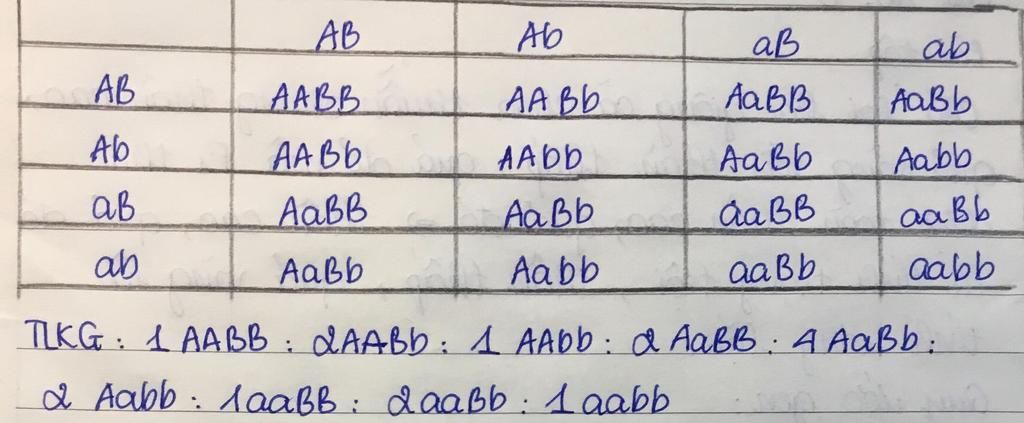 AB Ab aB ab
AB AABB AABb AaBB AaBb
Ab AABb AAbb AaBb Aabb
aB AaBB AaBb aaBB aaBb
ab AaBb Aabb aaBb aabb
TLKG : 1 AABB : 2AABb : 1 AAbb : 2 AaBB : 4 AaBb :
2 Aabb : 1aaBB : 2aaBb : 1aabb